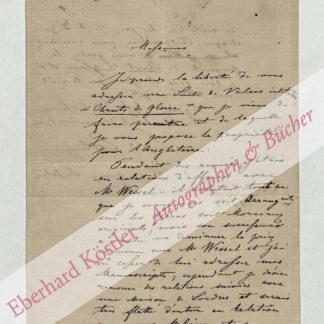 Messieurs
Je prends la liberté de vous
adresser une Suite de Valses
"Chants de Gloire" que je viens de
faire paraître et de laquelle
je vous propose la propriété
pour l'Angleterre.
Pendant des années j'étais
en relations d'affaires avec
Mr Wessel
que je
Morceaux
mais son successeur
diminuer le prix
avec Mr Wessel et j'ai
cessé de lui adresser mes
Manuscripts; cependant je désire
renouer des relations suivies avec
une Maison de Londres et serais
très flatté d'entrer en relation
Eberhard Köstler - Autographen & Bücher